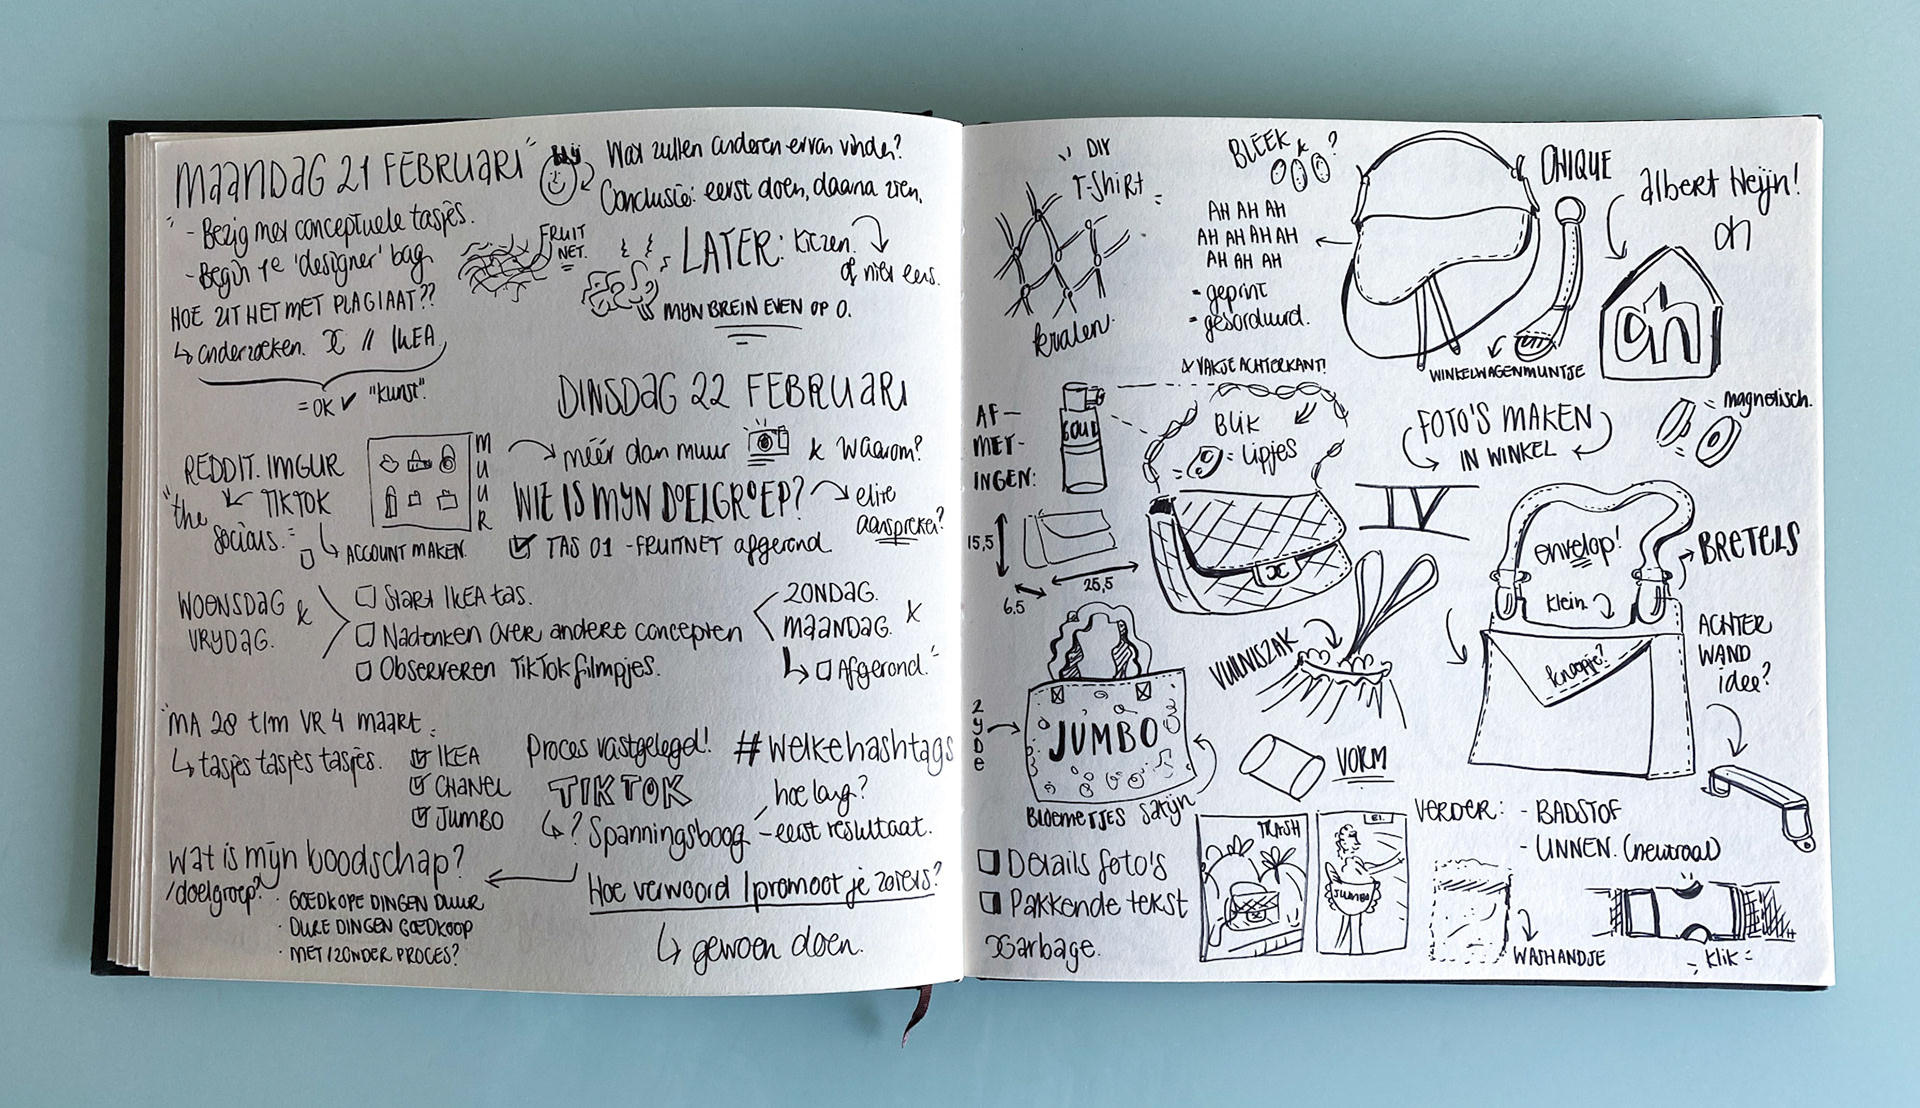 MAANDAG 21 FEBRUARI
- Bezig met conceptuele tasjes.
- Begin 1e 'designer' bag
HOE ZIT HET MET PLAGIAAT??
↳ onderzoeken. // IKEA
= OK ✓ "KUNST".
Wat zullen anderen ervan vinden?
Conclusie: eerst doen, daarna zien.
FRUIT
NET.
LATER: kiezen.
of niet eens.
MIJN BREIN EVEN OP 0.
DINSDAG 22 FEBRUARI
REDDIT. IMGUR
TIKTOK
"the
socials."
ACCOUNT MAKEN.
MUUR
méér dan muur & Waarom?
WIE IS MIJN DOELGROEP?
elite
aanspreken?
TAS 01 - FRUITNET afgerond
WOENSDAG &
VRIJDAG.
Start IKEA tas.
Nadenken over andere concepten
Observeren TikTok filmpjes.
ZONDAG.
MAANDAG. &
Afgerond."
"MA 28 t/m VR 4 maart.
↳ tasjes tasjes tasjes.
IKEA
CHANEL
JUMBO
Proces vastgelegd!
#welkehashtags
TIKTOK
hoe lang?
↳? Spanningsboog - eerst resultaat.
Wat is mijn boodschap?
/doelgroep?
· GOEDKOPE DINGEN DUUR
· DURE DINGEN GOEDKOOP
· MET/ZONDER PROCES?
Hoe verwoord/promoot je zoiets?
↳ gewoon doen.
DIY
T-shirt
kralen.
BLEEK & ?
AH AH AH
AH AH AH AH
AH AH AH
- geprint
- geborduurd.
& VAKJE ACHTERKANT!
UNIQUE
albert Heijn!
ah
ah
WINKELWAGENMUNTJE
AF-
MET-
INGEN:
GOUD
15,5
6,5
25,5
BLIK
= lipjes
FOTO'S MAKEN
IN WINKEL
= magnetisch.
IV
envelop!
klein.
BRETELS
knoopje?
ACHTER
WAND
idee?
VUILNISZAK
ZIJDE
JUMBO
BLOEMETJES satijn
VORM
Details foto's
Pakkende tekst
Garbage.
TRASH
JUMBO
VERDER: - BADSTOF
- LINNEN. (neutraal)
WASHANDJE
- KLIK -